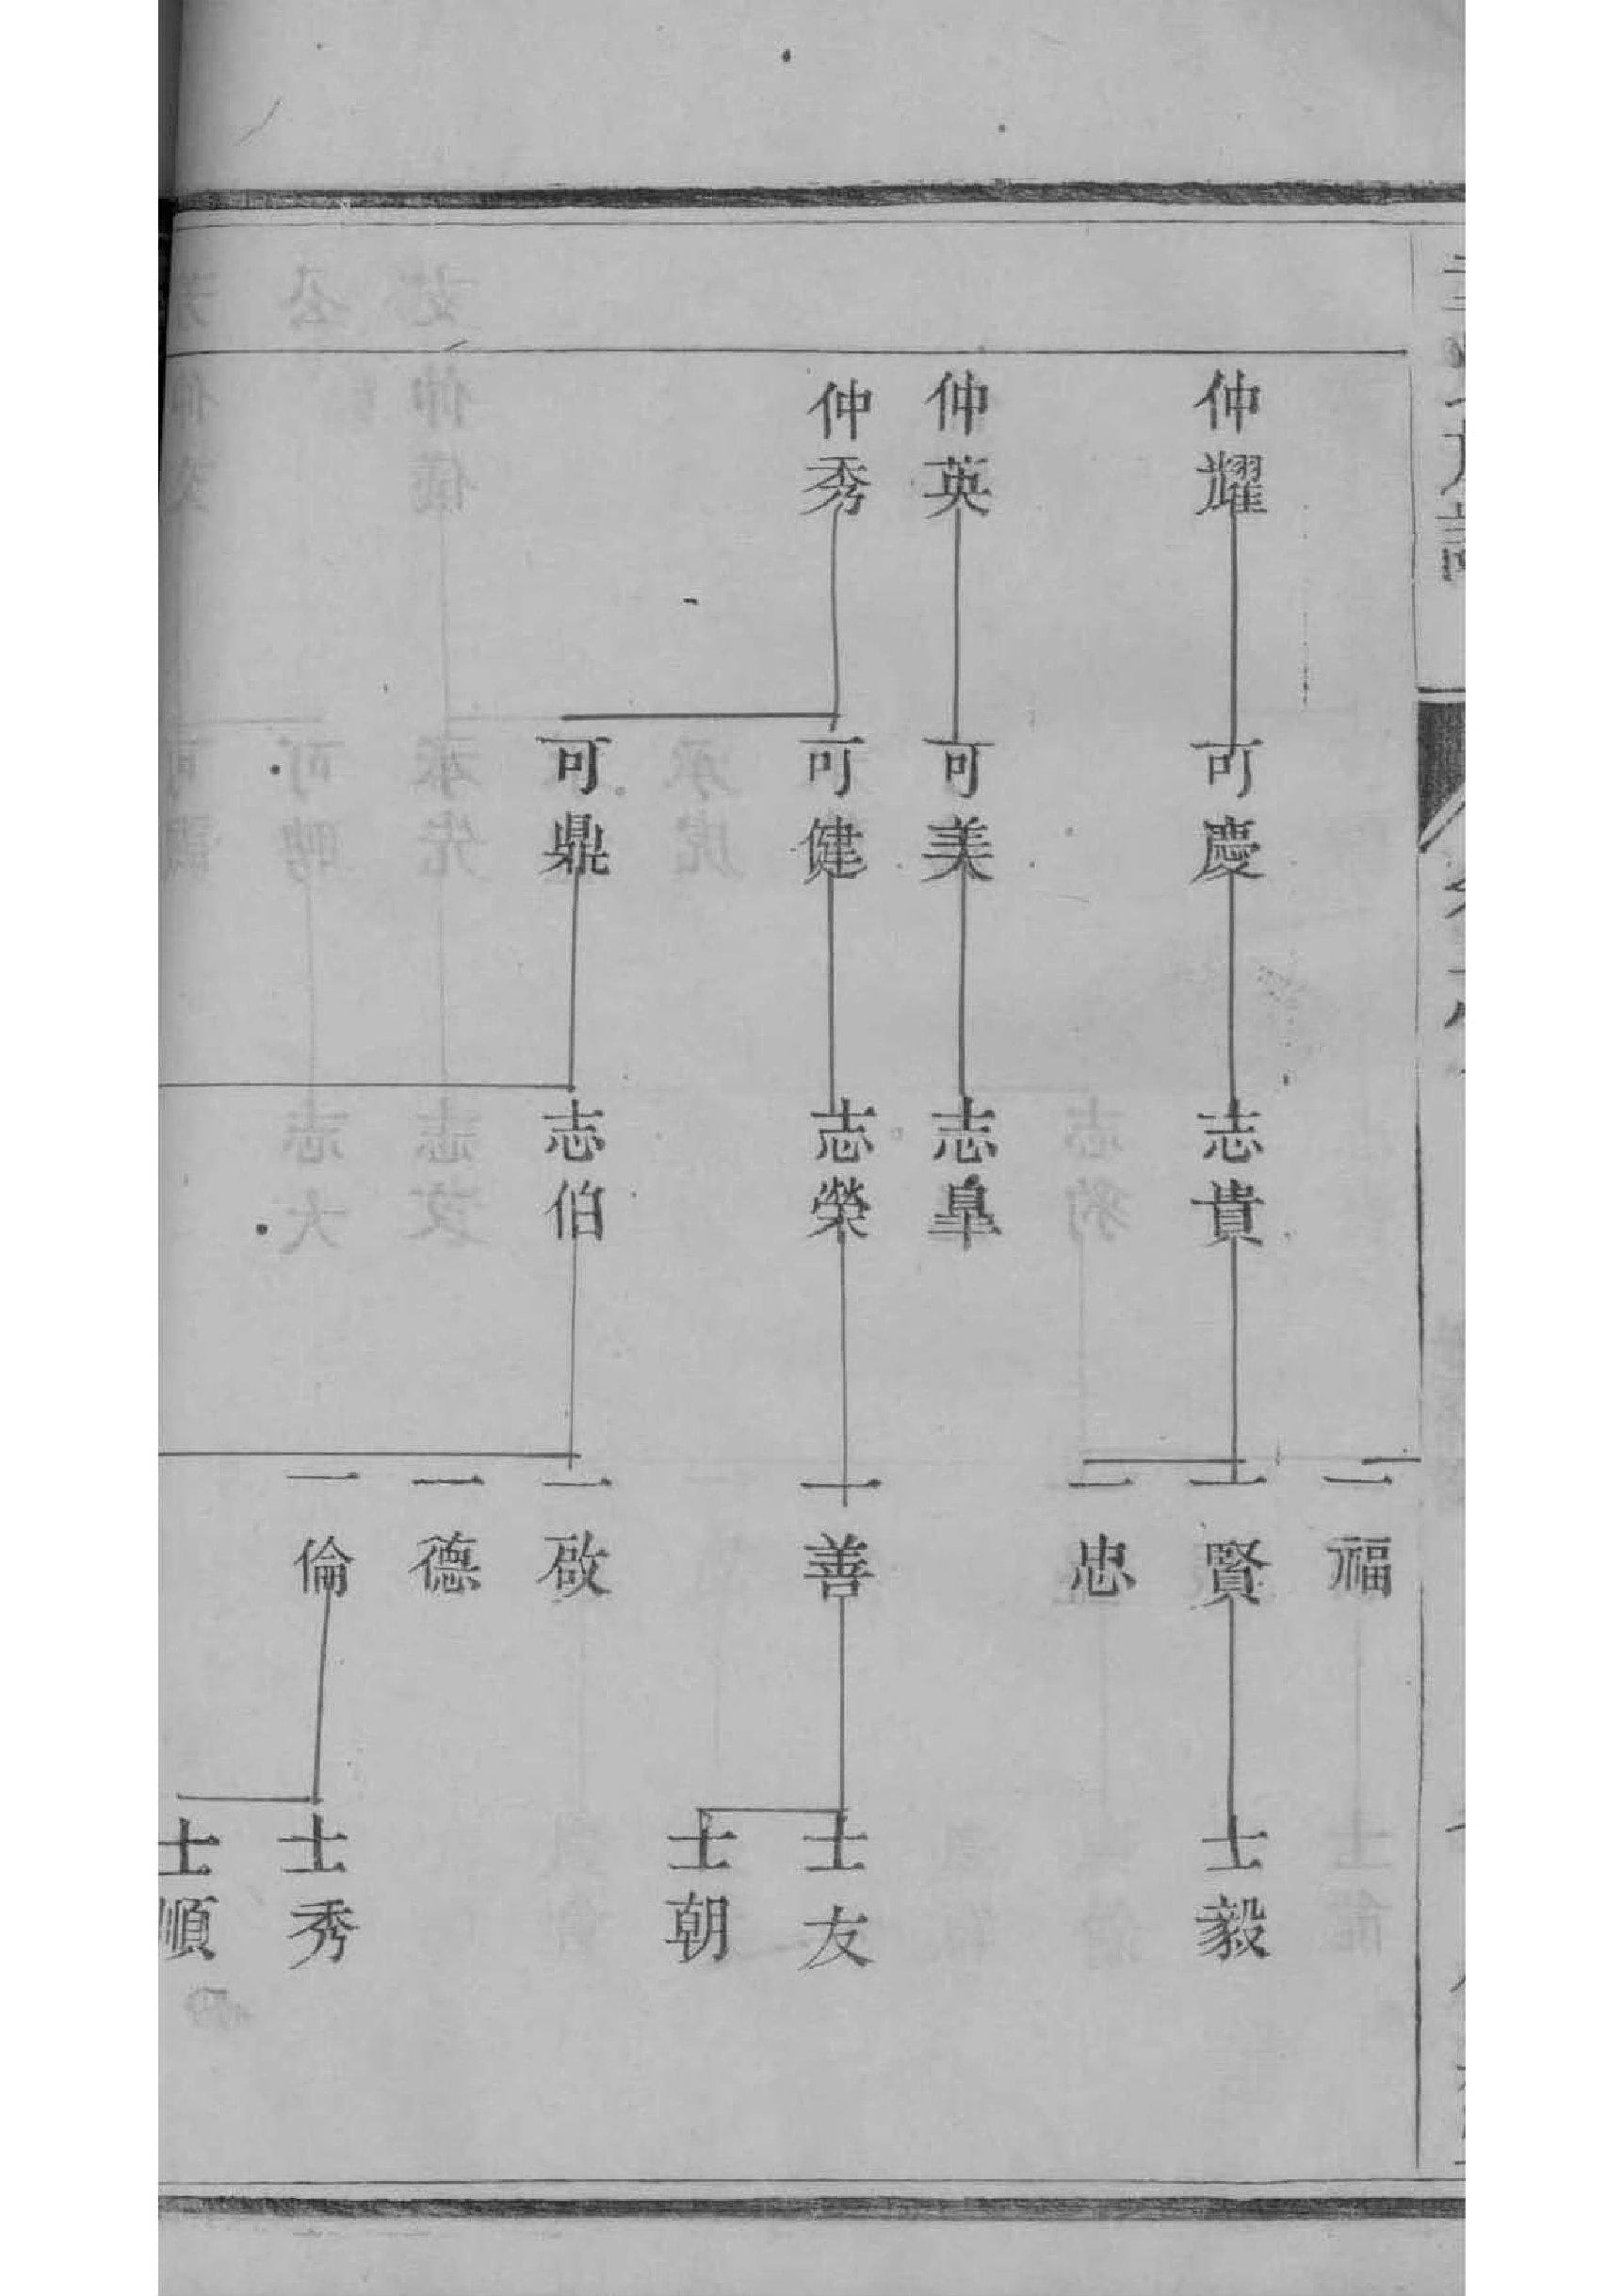 仲耀
仲英
仲秀
可慶
可美
可健
可鼎
志貴
志臯
志榮
志伯
一福
一賢
一忠
一善
一啟
一德
一倫
士毅
士友
士朝
士秀
士順